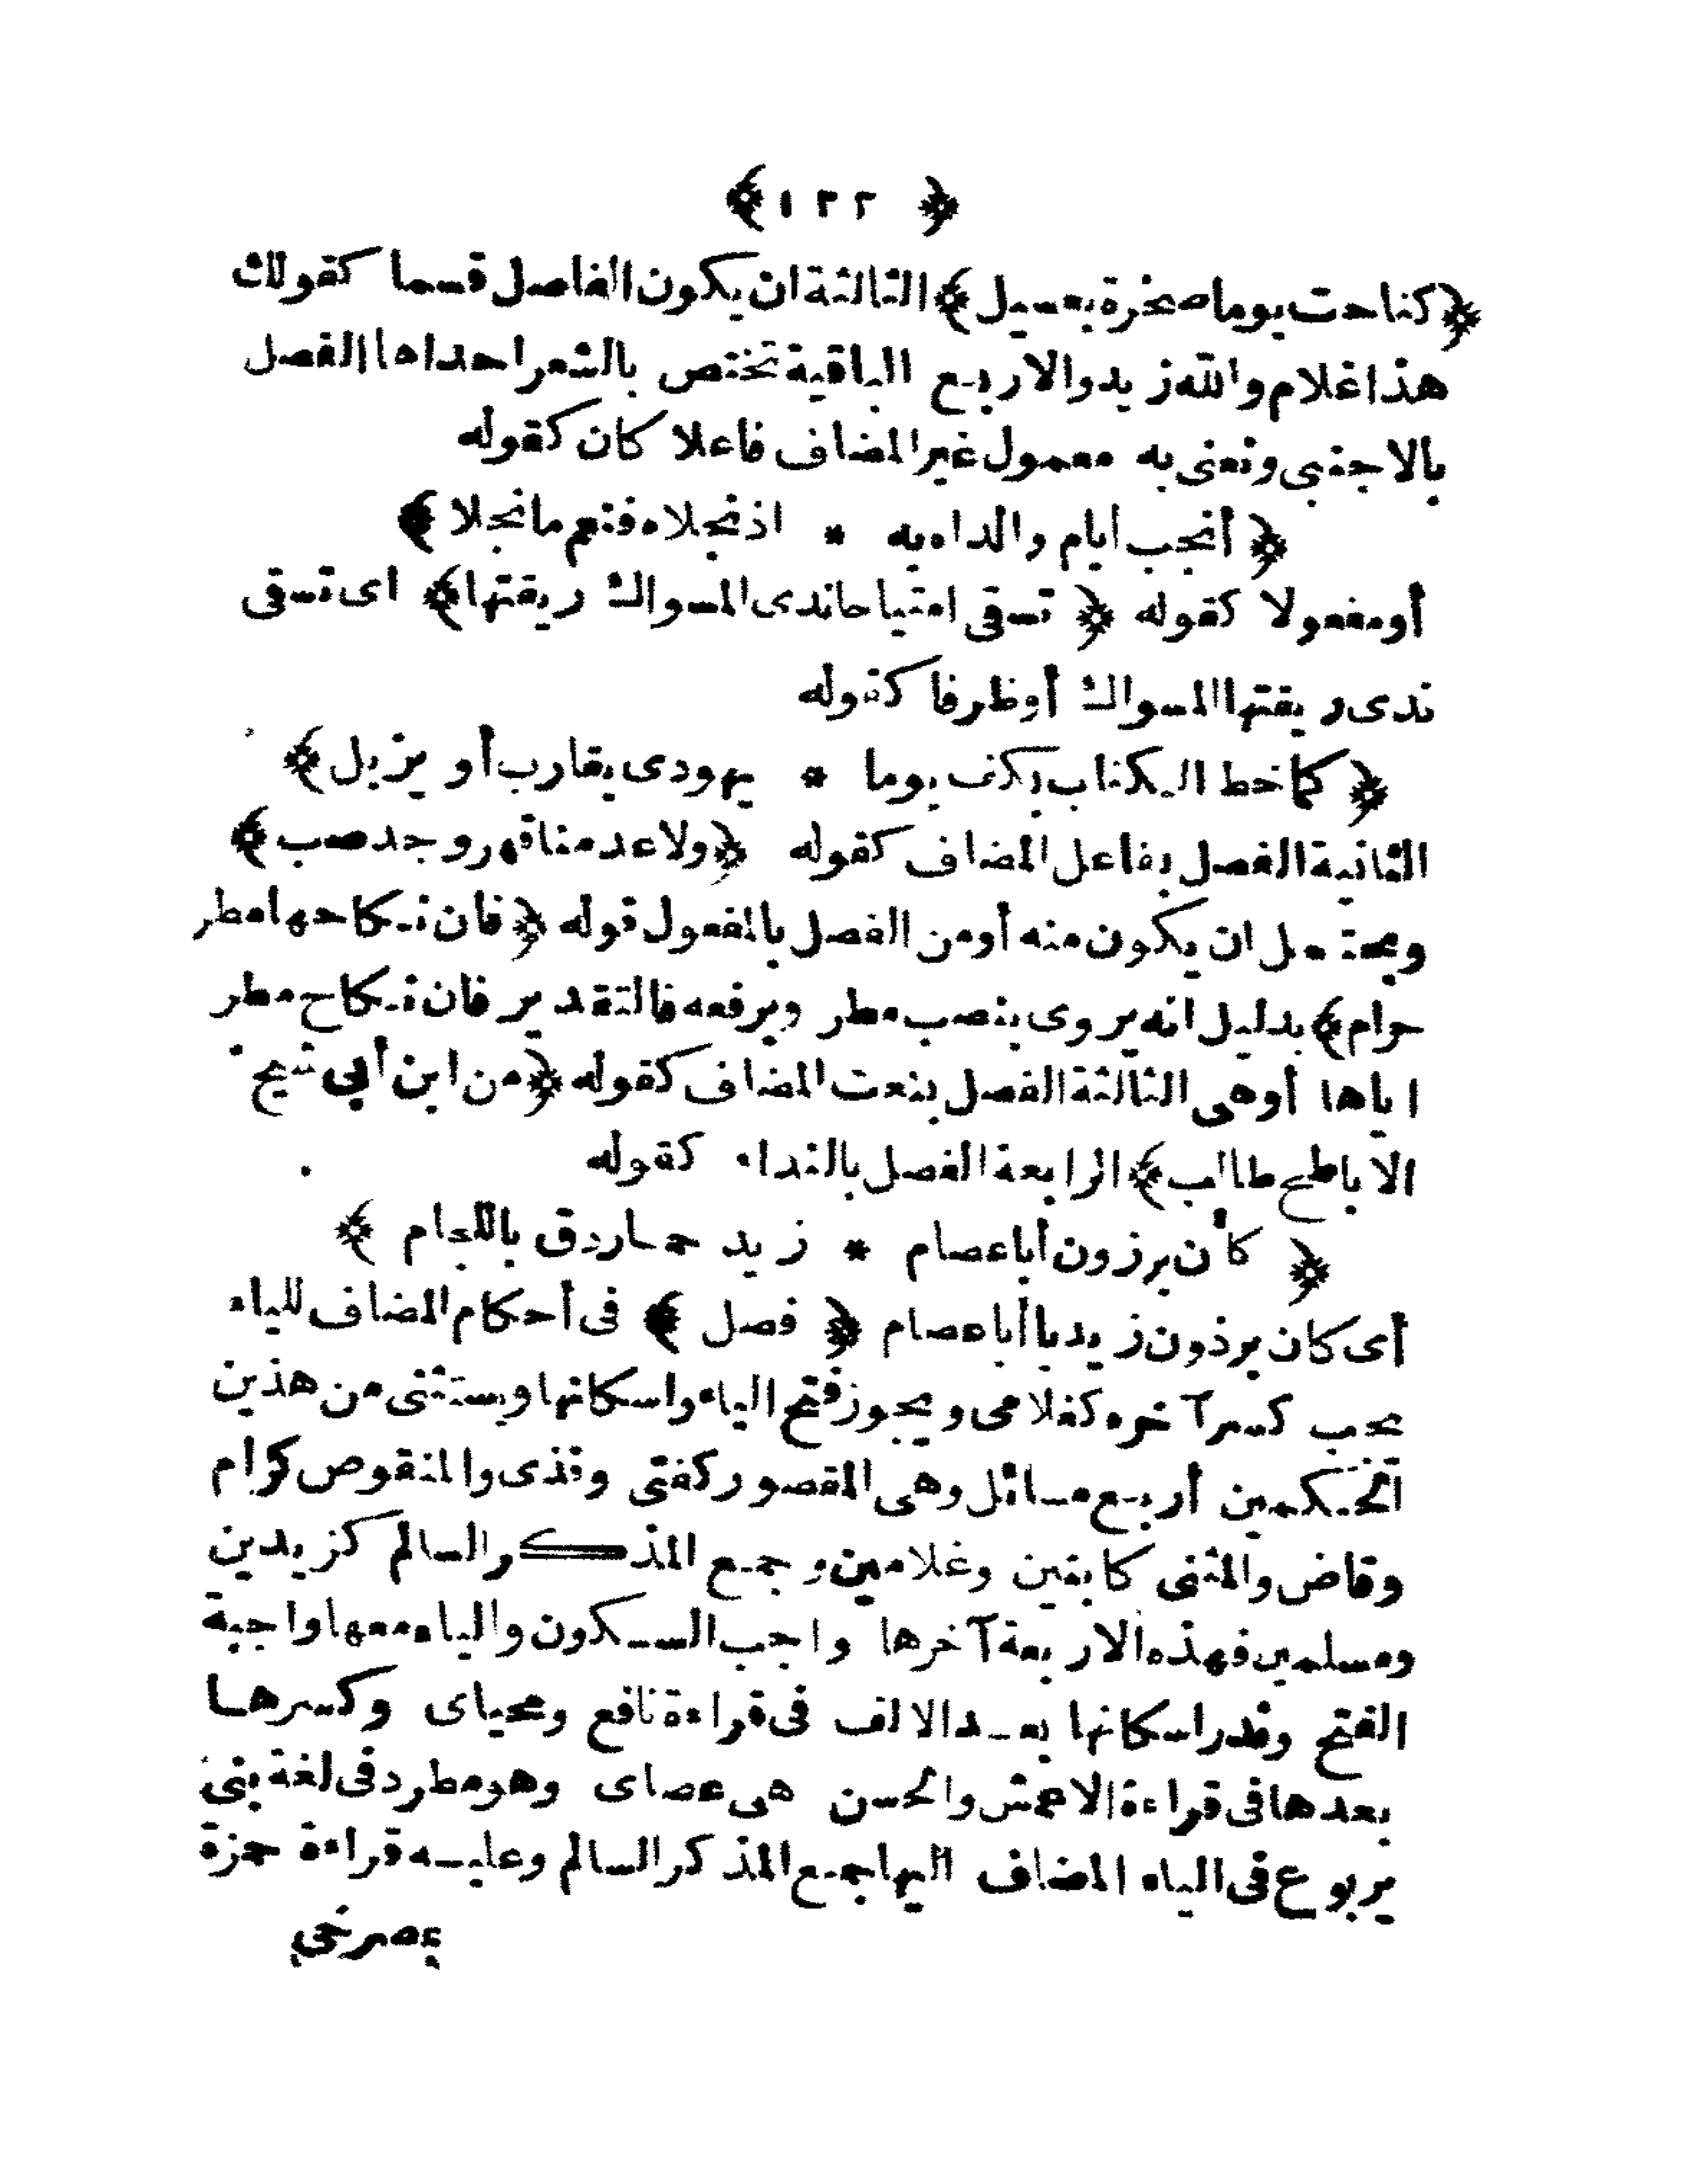 ﴿ ١٣٢ ﴾
﴿كناحت يوما صخرة بعسيل﴾ الثالثة ان يكون الفاصل قسما كقولك
هذا غلام والله زيد والاربع الباقية تختص بالشعر احداها الفصل
بالاجنبي ونعنى به معمول غير المضاف فاعلا كان كقوله
﴿ أنجب أيام والداه به * اذ نجلاه فنعم ما نجلا ﴾
أو مفعولا كقوله ﴿ تسقى امتياحا ندى المسواك ريقتها﴾ اى تسقى
ندى ريقتها المسواك أو ظرفا كقوله
﴿ كما خط الكتاب بكف يوما * يهودى يقارب أو يزيل﴾
الثانية الفصل بفاعل المضاف كقوله ﴿ولا عدمنا قهر وجد صب﴾
ويحتمل ان يكون منه أو من الفصل بالمفعول قوله ﴿فان نكاحها مطر
حرام﴾ بدليل انه يروى بنصب مطر وبرفعه فالتقدير فان نكاح مطر
اياها أو هى الثالثة الفصل بنعت المضاف كقوله ﴿من ابن أبى شيخ
الاباطح طالب﴾ الرابعة الفصل بالنداء كقوله
﴿ كأن برزون أبا عصام * زيد حمار دق باللجام ﴾
أى كان برذون زيد يا أبا عصام ﴿ فصل ﴾ فى أحكام المضاف للياء
يجب كسر آخره كغلامى ويجوز فتح الياء واسكانها ويستثنى من هذين
الحكمين أربع مسائل وهى المقصور كفتى وقذى والمنقوص كرام
وقاض والمثنى كابنين وغلامين وجمع المذكر السالم كزيدين
ومسلمين فهذه الاربعة آخرها واجب السكون والياء معها واجبة
الفتح وندر اسكانها بعد الالف فى قراءة نافع ومحياى وكسرها
بعدها فى قراءة الاعمش والحسن هى عصاى وهو مطرد فى لغة بنى
يربوع فى الياء المضاف اليها جمع المذكر السالم وعليه قراءة حمزة
بمصرخى